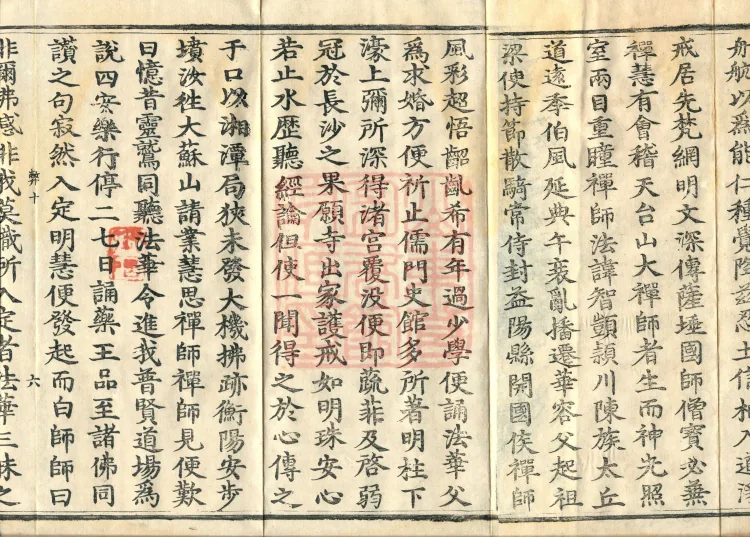 舟航以爲能仁種覺降茲忍土信相入道淨
戒居先梵網明文深傳薩埵國師僧寶必兼
禪慧有會稽天台山大禪師者生而神光照
室兩目重瞳禪師法諱智顗潁川陳族太丘
道遠李伯風延典午衰亂播遷華容父起祖
梁使持節散騎常侍封益陽縣開國侯禪師
風彩超悟齠齔希有年過少學便誦法華父
爲求婚方便祈止儒門史館多所著明柱下
濠上彌所深得渚宮覆沒便即蔬菲及啓弱
冠於長沙之果願寺出家護戒如明珠安心
若止水歷聽經論但使一聞得之於心傳之
于口以湘潭局狹未發大機拂跡衡陽安步
墳汝往大蘇山請業慧思禪師禪師見便歎
曰憶昔靈鷲同聽法華令進我普賢道場爲
說四安樂行停二七日誦藥王品至諸佛同
讚之句寂然入定明慧便發起而白師師曰
十 六
非爾弗感非我莫識所入定者法華三昧之